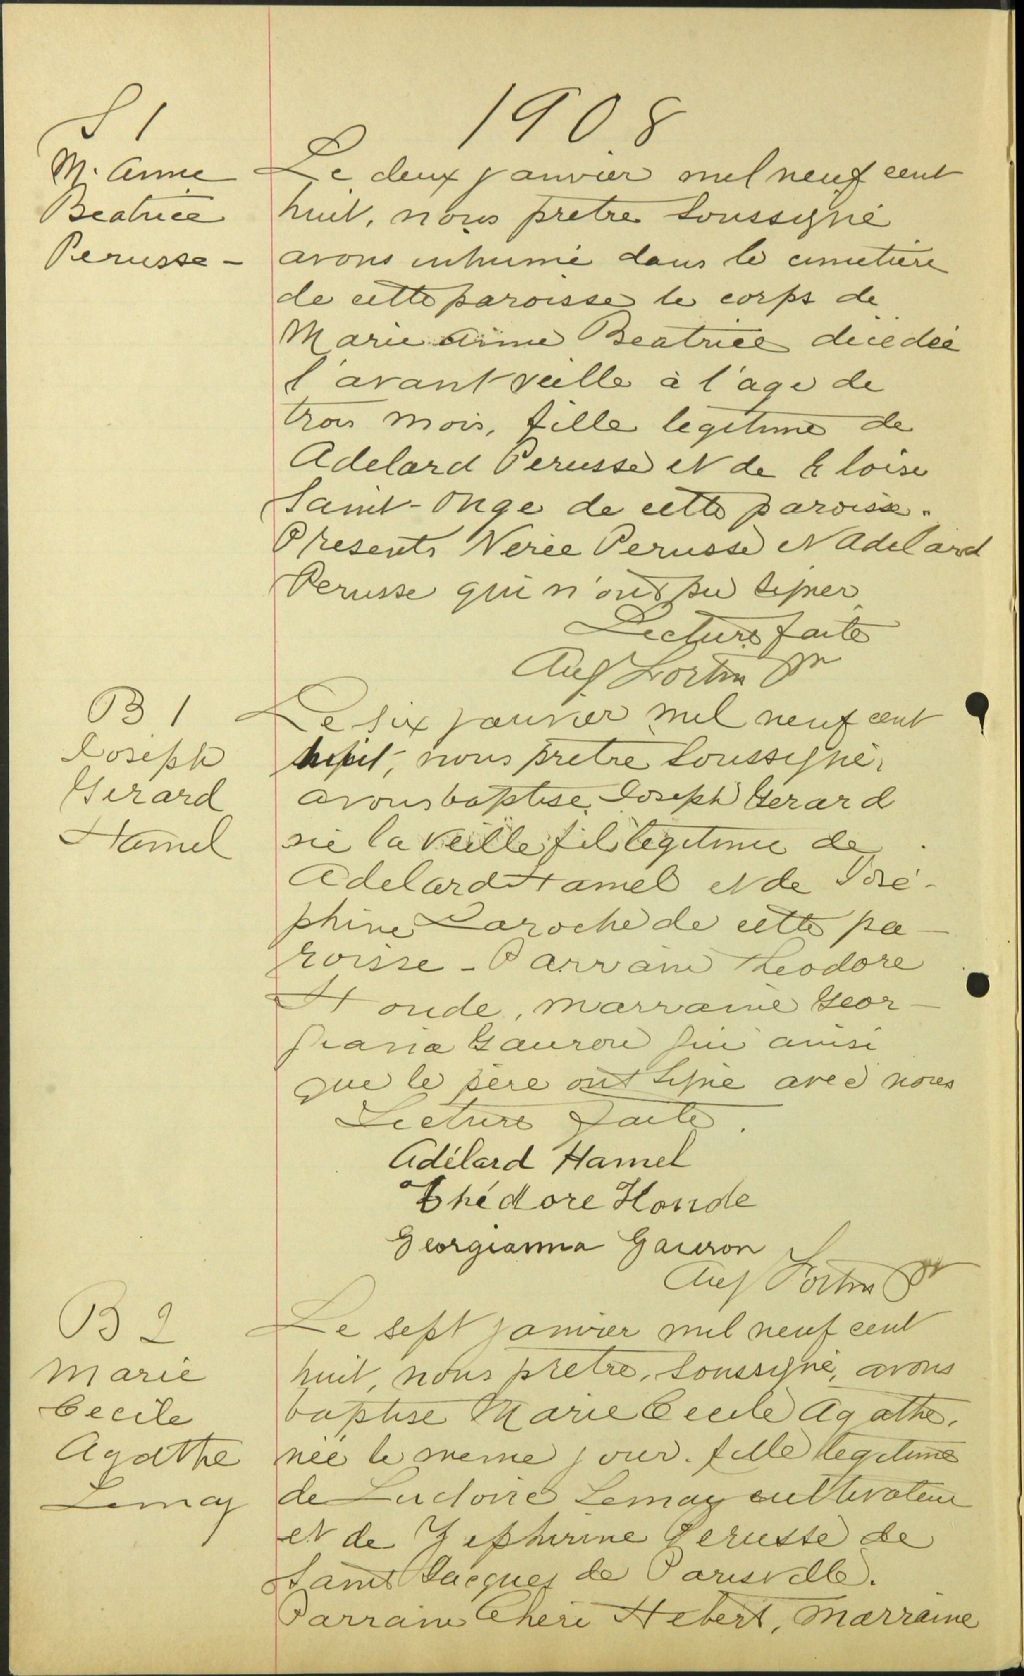 1908
S 1
M. Anne
Beatrice
Perusse -
Le deux janvier mil neuf cent
huit, nous pretre soussigné
avons inhumé dans le cimetière
de cette paroisse le corps de
Marie Anne Beatrice décédée
l'avant veille à l'age de
trois mois, fille legitime de
Adelard Perusse et de Eloise
Saint-Onge de cette paroisse.
Presents Nerée Perusse et Adelard
Perusse qui n'ont pu signer
Lecture faite
Aug Fortin Ptr
B 1
Joseph
Gerard
Hamel
Le six janvier mil neuf cent
huit, nous pretre soussigné,
avons baptise Joseph Gerard
né la veille fils legitime de
Adelard Hamel et de José-
phine Laroche de cette pa-
roisse - Parrain Theodore
Houde, marraine Geor-
giana Gauron qui ainsi
que le père ont signé avec nous
Lecture faite.
Adélard Hamel
Thédore Houde
Georgianna Gauron
Aug Fortin Ptr
B 2
Marie
Cecile
Agathe
Lemay
Le sept janvier mil neuf cent
huit, nous pretre, soussigné, avons
baptise Marie Cecile Agathe,
née le meme jour. fille legitime
de Ludoire Lemay cultivateur
et de Zephirine Perusse de
Saint Jacques de Parisville.
Parrain Cheri Hebert, Marraine